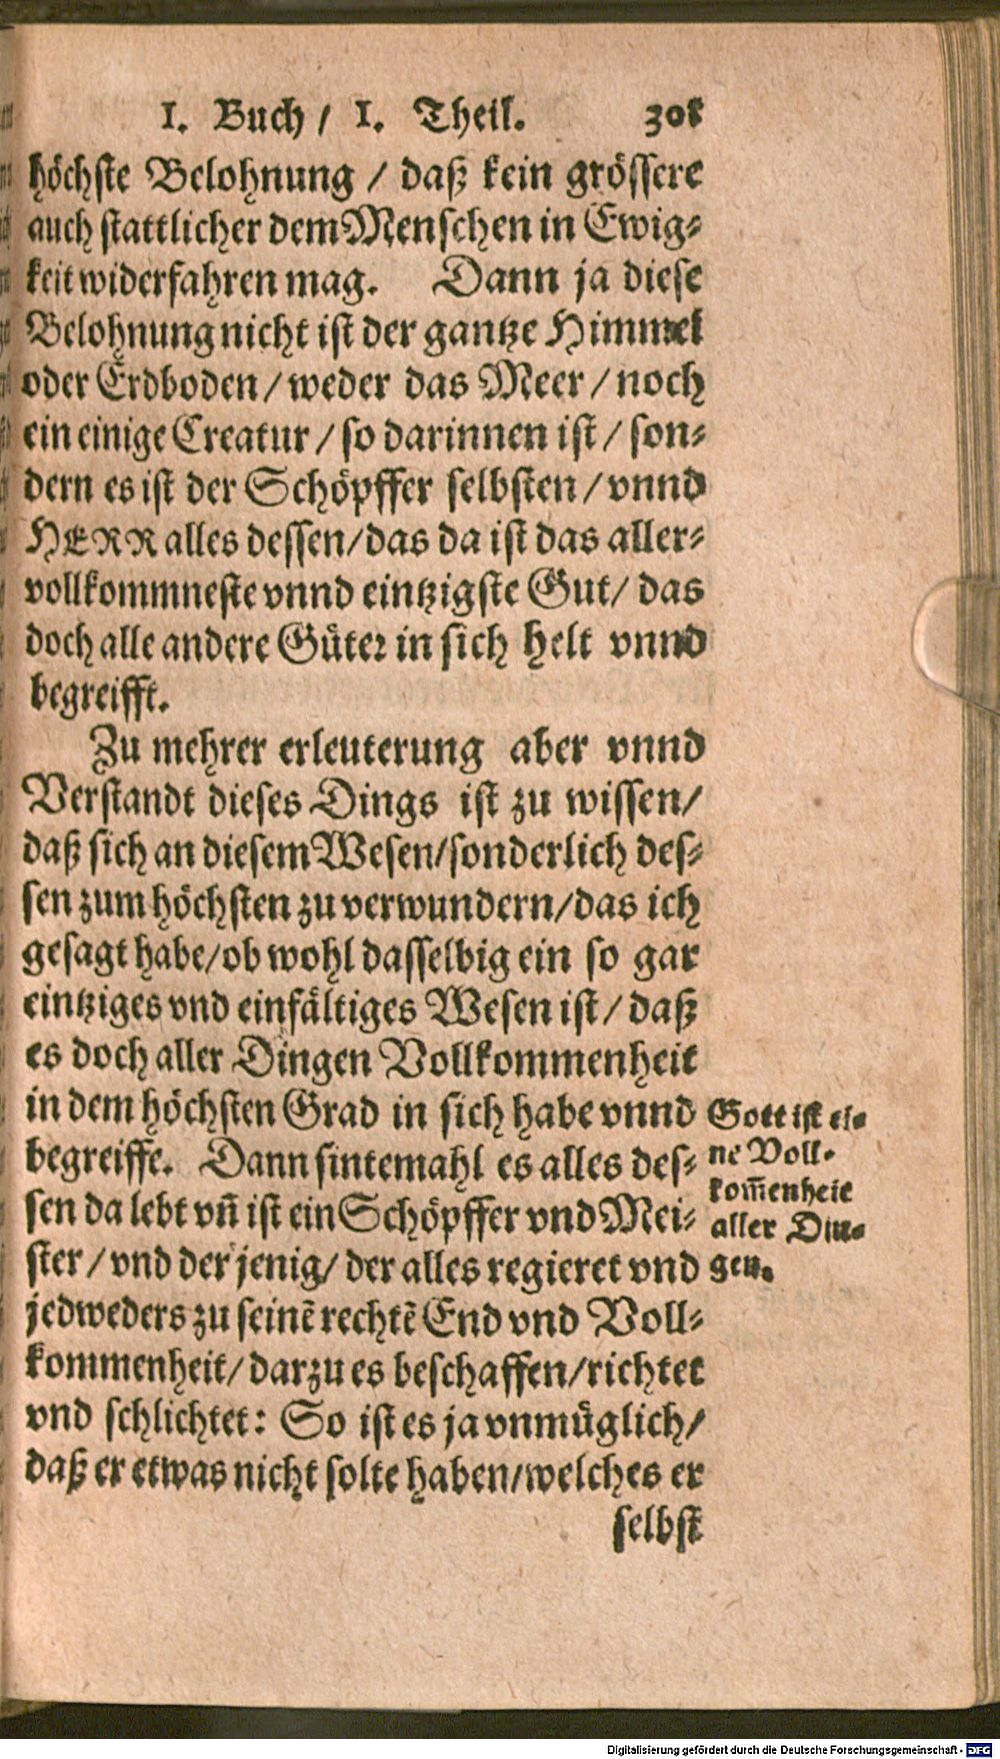 1. Buch / 1. Theil. 301
höchste Belohnung / daß kein grössere
auch stattlicher dem Menschen in Ewig⸗
keit widerfahren mag. Dann ja diese
Belohnung nicht ist der gantze Himmel
oder Erdboden / weder das Meer / noch
ein einige Creatur / so darinnen ist / son⸗
dern es ist der Schöpffer selbsten / vnnd
HERR alles dessen / das da ist das aller⸗
vollkommneste vnnd eintzigste Gut / das
doch alle andere Güter in sich helt vnnd
begreifft.
Zu mehrer erleuterung aber vnnd
Verstandt dieses Dings ist zu wissen /
daß sich an diesem Wesen / sonderlich des⸗
sen zum höchsten zu verwundern / das ich
gesagt habe / ob wohl dasselbig ein so gar
eintziges vnd einfältiges Wesen ist / daß
es doch aller Dingen Vollkommenheit
in dem höchsten Grad in sich habe vnnd
begreiffe. Dann sintemahl es alles des⸗
sen da lebt vñ ist ein Schöpffer vnd Mei⸗
ster / vnd der jenig / der alles regieret vnd
jedweders zu seinẽ rechtẽ End vnd Voll⸗
kommenheit / darzu es beschaffen / richtet
vnd schlichtet: So ist es ja vnmüglich /
daß er etwas nicht solte haben / welches er
selbst
Gott ist ei⸗
ne Voll⸗
kom̃enheit
aller Din⸗
gen.
Digitalisierung gefördert durch die Deutsche Forschungsgemeinschaft - DFG